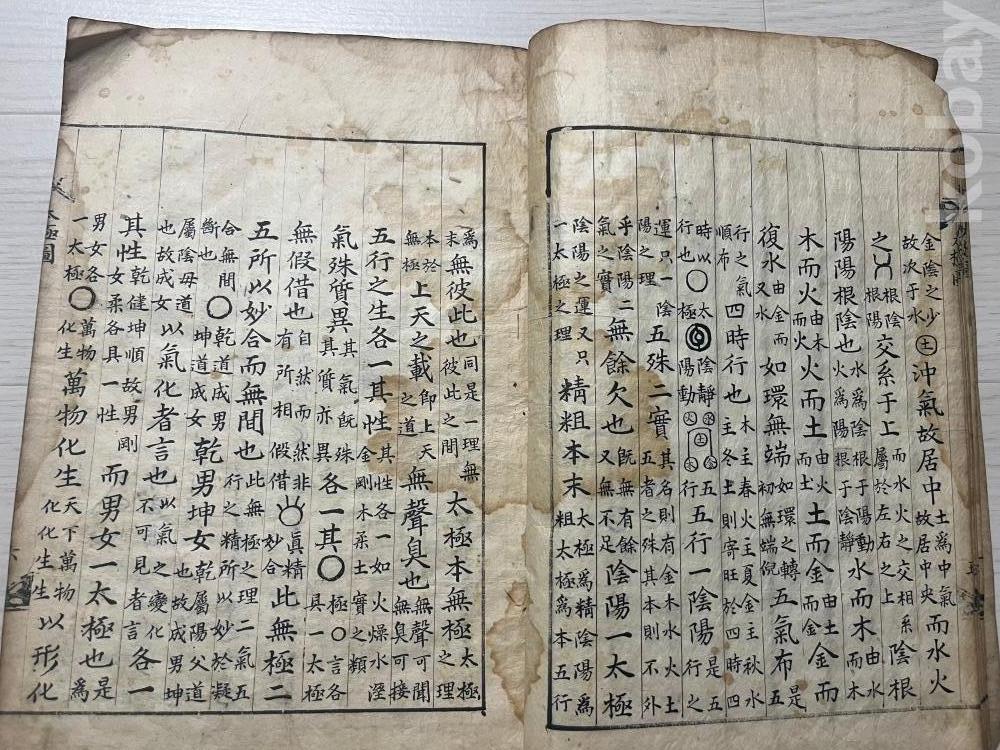 金陰之少故次于水㊏沖氣故居中土爲中氣故居中央而水火
之根陰根陽交系于上而水火之交相系屬於左右之上陰根
陽陽根陰也水爲陰根于陽動火爲陽根于陰靜水而木由水而木
木而火由木而火火而土由火而土土而金由土而金金而
復水由金而又水如環無端如環之轉初無端倪五氣布是五
行之氣順布四時行也木主春火主夏金主秋水主冬土則寄旺於四時四
時以行也○太極陰靜陽動水火土木金五行五行一陰陽是五行之
運只一陰陽之理五殊二實其名則有金木水火土五者之殊其本則不外
乎陰陽二氣之實無餘欠也旣無有餘又無不足陰陽一太極
陰陽之運又只一太極之理精粗本末太極爲精陰陽爲粗太極爲本五行
爲末無彼此也同是一理無彼此之間太極本無極太極之理
本於無極上天之載卽上天之道無聲臭也無聲可聞無臭可接
五行之生各一其性其性各一如火燥水溼金剛木柔土實之類
氣殊質異其氣旣殊其質亦異各一其○○言各具一太極
無假借也自然而然非有所相假借眞精妙合此無極二
五所以妙合而無間也此無極之理二氣五行之精所以妙於凝
合無間斷也○乾道成男坤道成女乾男坤女乾屬陽父道也故成男坤
屬陰母道也故成女以氣化者言也以氣之變化不可見者言各一
其性乾健坤順故男剛女柔各具一性而男女一太極也是
男女各一太極○萬物化生萬物化生天下萬物化化生生以形化
太極圖
kobay